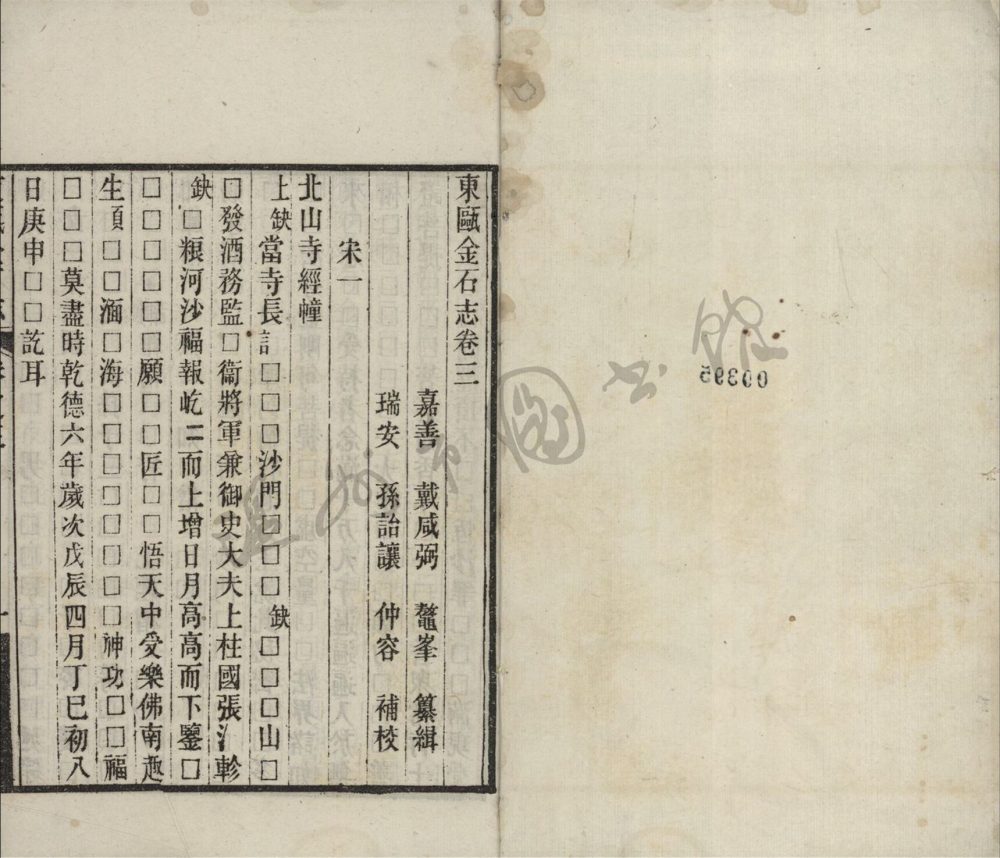 東甌金石志卷三
嘉善 戴咸弼 鼇峯 纂緝
瑞安 孫詒讓 仲容 補校
宋一
北山寺經幢
上缺當寺長訁□□□□沙門□□□□缺□□□□山□
□發酒務監□衞將軍兼御史大夫上柱國張氵軫
缺□粮河沙福報屹二而上增日月高高而下鑒□
□□□□□□願□□匠□□悟天中受樂佛南趣
生頂□□□湎□海□□□□□□□□神功□□□福
□□□莫盡時乾德六年歲次戊辰四月丁巳初八
日庚申□□訖耳
00395